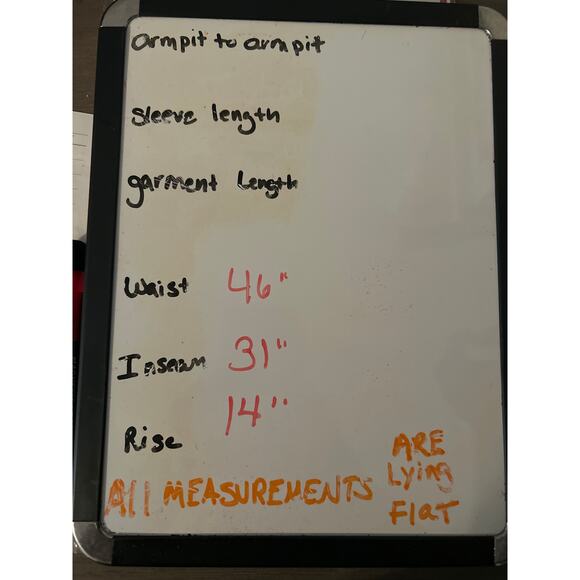 armpit to armpit
Sleeve length
garment Length
Waist 46"
Inseam 31"
Rise 14"
All MEASUREMENTS ARE Lying Flat